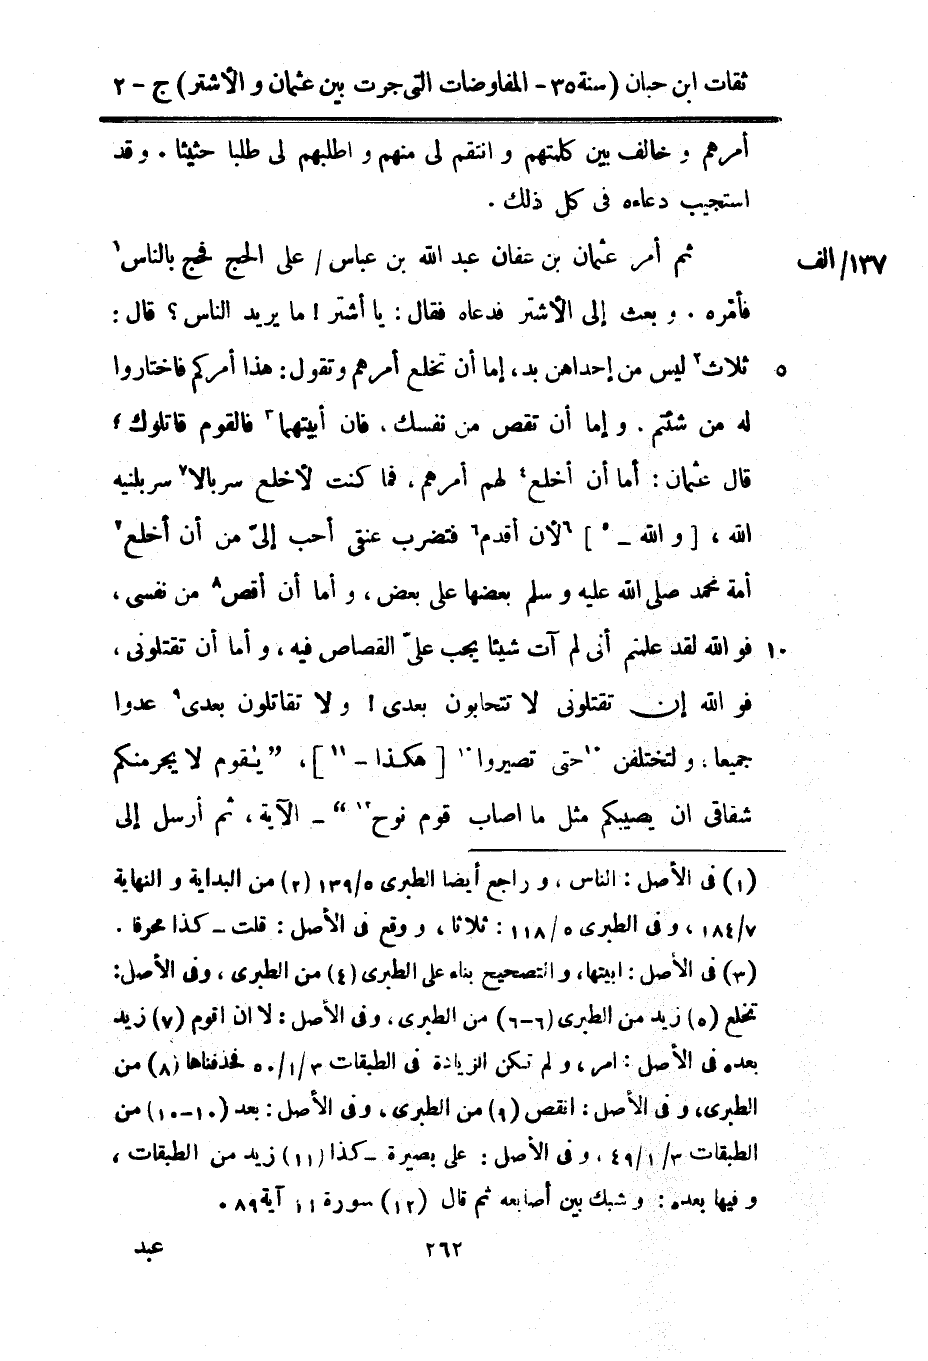 ثقات ابن حبان (سنة ٣٥ - المفاوضات التى جرت بين عثمان و الأشتر) ج - ٢
أمرهم و خالف بين كلمتهم و انتقم لى منهم و اطلبهم لى طلبا حثيثا . و قد
استجيب دعاءه فى كل ذلك .
ثم أمر عثمان بن عفان عبد الله بن عباس / على الحج فحج بالناس١ ١٣٧/ الف
فأقره . و بعث إلى الأشتر فدعاه فقال : يا أشتر ! ما يريد الناس ؟ قال :
ثلاث٢ ليس من إحداهن بد ، إما أن تخلع أمرهم و تقول : هذا أمركم فاختاروا ٥
له من شئتم . و إما أن تقص من نفسك ، فان أبيتهما٣ فالقوم قاتلوك ؟
قال عثمان : أما أن أخلع٤ لهم أمرهم ، فما كنت لأخلع سربالا٧ سربلنيه
الله ، [ و الله - ٥ ] ٦لأن أقدم٦ فتضرب عنقى أحب إلىّ من أن أخلع٢
أمة محمد صلى الله عليه و سلم بعضها على بعض ، و أما أن أقص٨ من نفسى ،
فو الله لقد علمتم أنى لم آت شيئا يجب علىّ القصاص فيه ، و أما أن تقتلونى ، ١٠
فو الله إن تقتلونى لا تتحابون بعدى ! و لا تقاتلون بعدى٩ عدوا
جميعا ، و لتختلفن ١٠حتى تصيروا١٠ [ هكذا - ١١ ] ، ” يٰقوم لا يجرمنكم
شقاقى ان يصيبكم مثل ما اصاب قوم نوح١٢ “ - الآية ، ثم أرسل إلى
(١) فى الأصل : الناس ، و راجع أيضا الطبرى ١٣٩/٥ (٢) من البداية و النهاية
١٨٤/٧ ، و فى الطبرى ١١٨/٥ : ثلاثا ، و وقع فى الأصل : قلت - كذا محرفا .
(٣) فى الأصل : ابيتها ، و التصحيح بناء على الطبرى (٤) من الطبرى ، و فى الأصل :
تخلع (٥) زيد من الطبرى (٦-٦) من الطبرى ، و فى الأصل : لا ان اقوم (٧) زيد
بعده فى الأصل : امر ، و لم تكن الزيادة فى الطبقات ٥٠/١/٣ فحذفناها (٨) من
الطبرى ، و فى الأصل : انقص (٩) من الطبرى ، و فى الأصل : بعد (١٠-١٠) من
الطبقات ٤٩/١/٣ ، و فى الأصل : على بصيرة - كذا (١١) زيد من الطبقات ،
و فيها بعده : و شبك بين أصابعه ثم قال (١٢) سورة ١١ آية ٨٩ .
٢٦٢ عبد